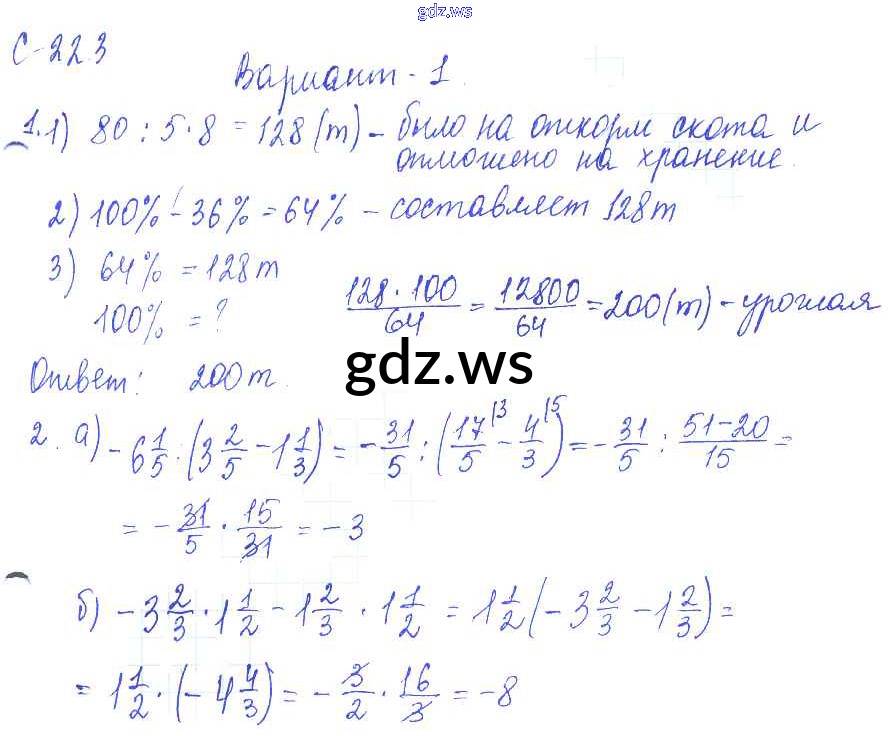 gdz.ws
С-22.3
Вариант-1.
1. 1) 80 : 5 · 8 = 128 (т) - было на откорм скота и
отложено на хранение.
2) 100% - 36% = 64% - составляет 128т
3) 64% = 128т
100% = ?
128 · 100/64 = 12800/64 = 200(т) - урожая
Ответ: 200т.
gdz.ws
2. а) -6 1/5 : (3 2/5 - 1 1/3) = -31/5 : (17/5 |3 - 4/3 |5) = -31/5 : 51-20/15 =
= -31/5 · 15/31 = -3
б) -3 2/3 · 1 1/2 - 1 2/3 · 1 1/2 = 1 1/2 (-3 2/3 - 1 2/3) =
= 1 1/2 · (-4 4/3) = -3/2 · 16/3 = -8